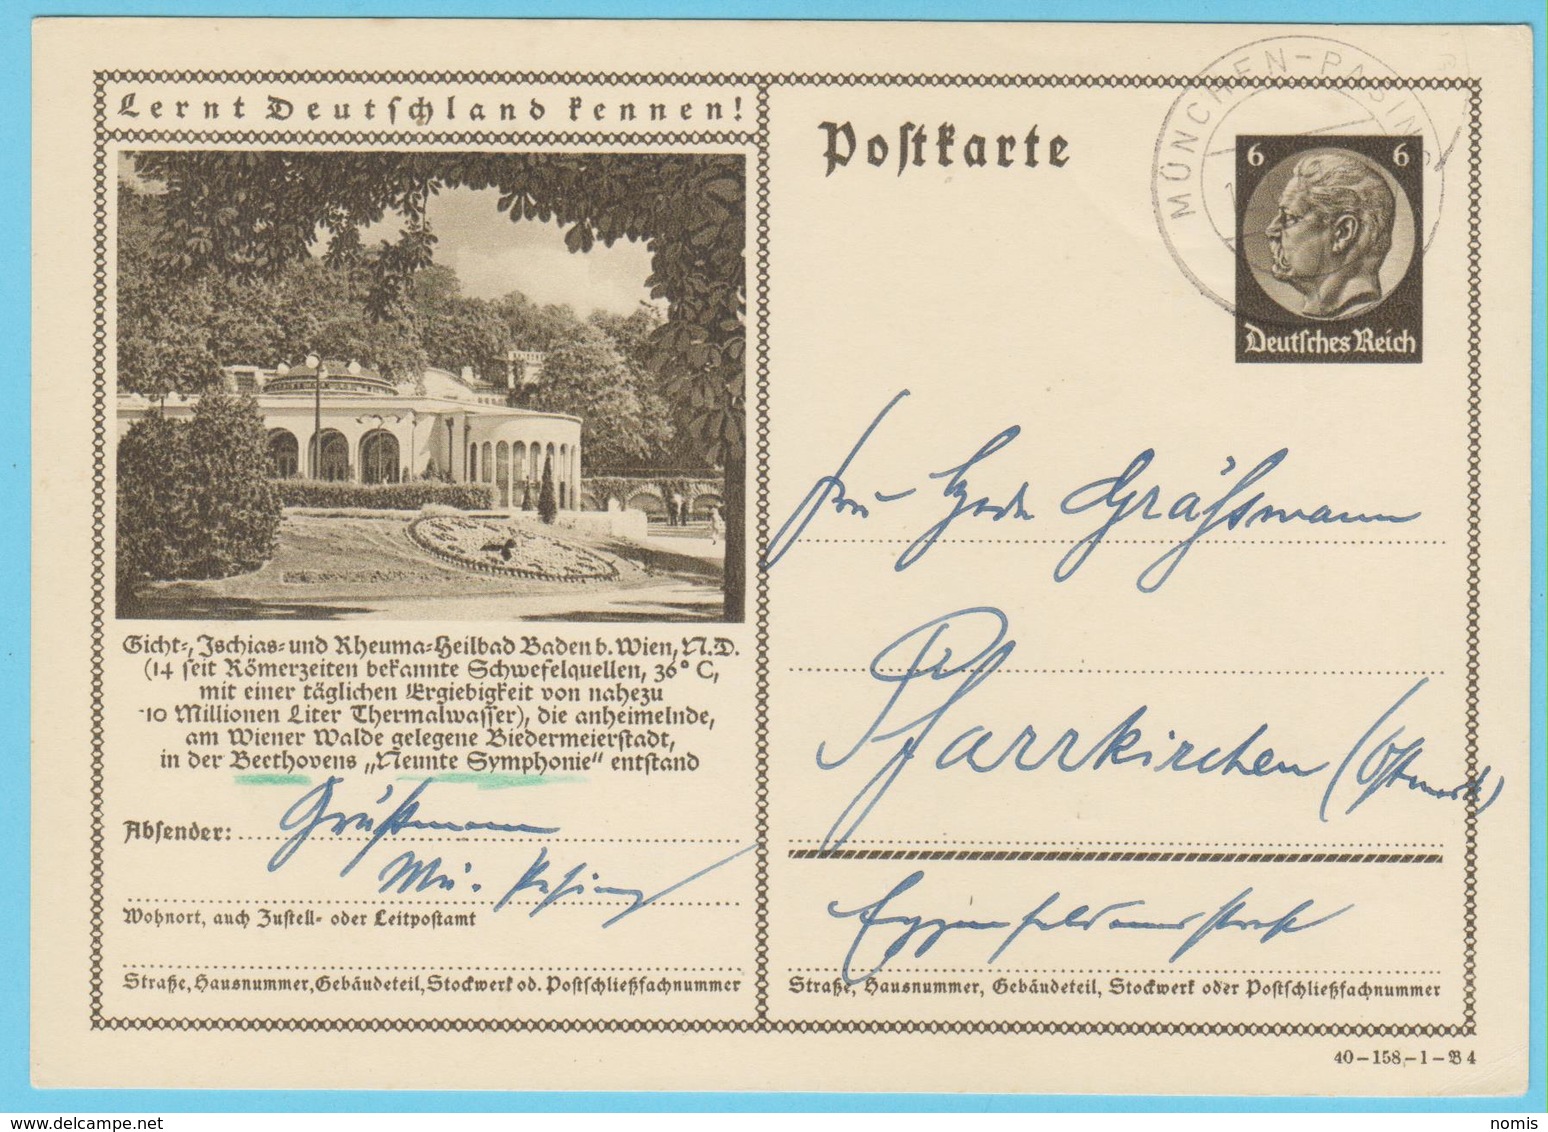 Lernt Deutschland kennen!
Gicht-, Ischias- und Rheuma-Heilbad Baden b. Wien, N.D.
(14 seit Römerzeiten bekannte Schwefelquellen, 36° C,
mit einer täglichen Ergiebigkeit von nahezu
10 Millionen Liter Thermalwasser), die anheimelnde,
am Wiener Walde gelegene Biedermeierstadt,
in der Beethovens „Neunte Symphonie“ entstand
Absender:
Mü. Pasing
Wohnort, auch Zustell- oder Leitpostamt
Straße, Hausnummer, Gebäudeteil, Stockwerk od. Postschließfachnummer
Postkarte
MÜNCHEN-PASING
6 6
Deutsches Reich
Pfarrkirchen (Ostmark)
Straße, Hausnummer, Gebäudeteil, Stockwerk oder Postschließfachnummer
40-158,-1-B 4
nomis